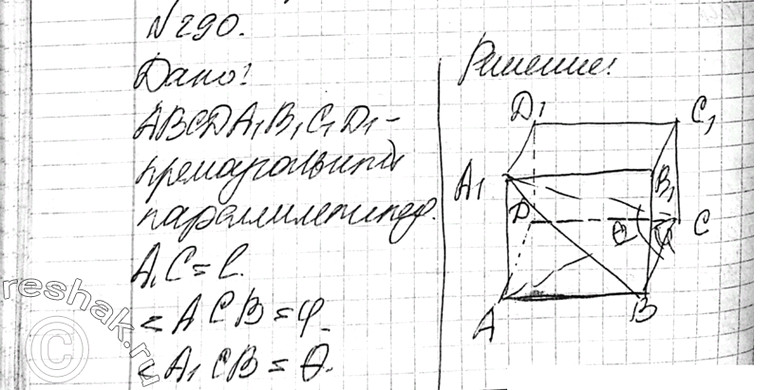 №290.
Дано:
ABCDA₁B₁C₁D₁ –
прямоугольный
параллелепипед.
A₁C = l.
∠ACB = φ.
∠A₁CB = θ.
Решение:
D₁
C₁
A₁
B₁
D
θ
φ
C
A
B
reshak.ru
©